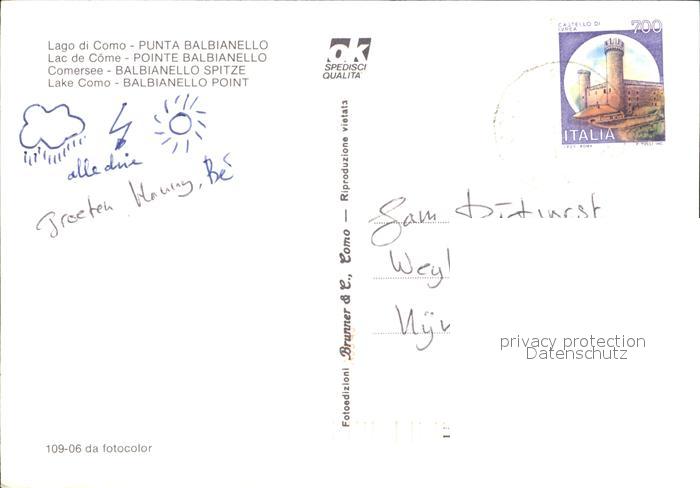 Lago di Como - PUNTA BALBIANELLO
Lac de Côme - POINTE BALBIANELLO
Comersee - BALBIANELLO SPITZE
Lake Como - BALBIANELLO POINT
ok
SPEDISCI
QUALITA'
CASTELLO DI
IVREA
700
ITALIA
alle drie
Groeten Hanny, Bé
Fam
Weyl
Nijv
Fotoedizioni Brunner & C., Como — Riproduzione vietata
privacy protection
Datenschutz
109-06 da fotocolor